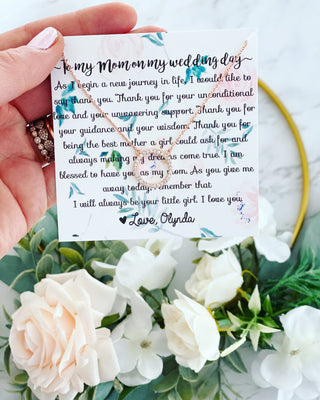 To my Mom on my wedding day
As I begin a new journey in life, I would like to
say thank you. Thank you for your unconditional
love and your unwavering support. Thank you for
your guidance and your wisdom. Thank you for
being the best mother a girl could ask for and
always making my dreams come true. I am
blessed to have you as my mom. As you give me
away today, remember that
I will always be your little girl. I love you
♥Love, Olynda